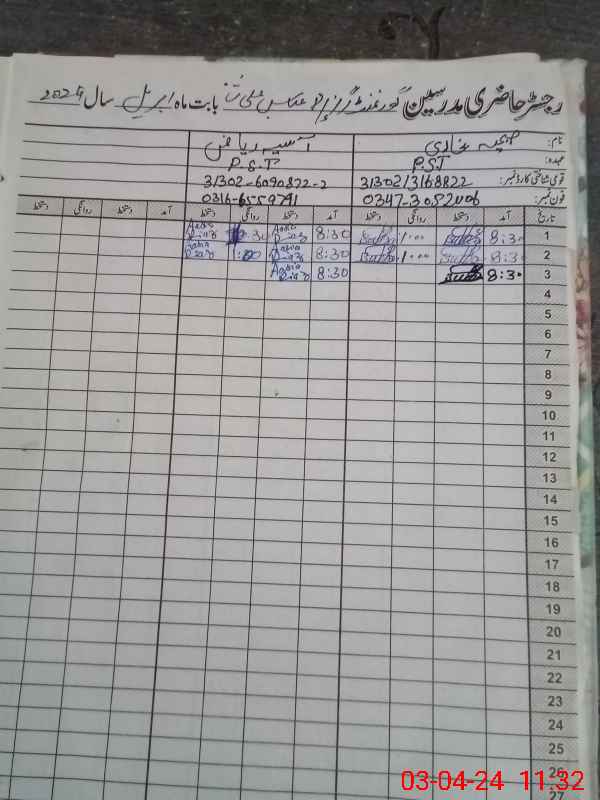 رجسٹر حاضری مدرسین گورنمنٹ گرلز بابت ماہ اپریل سال 2024
نام: بخاری آسیہ ریاض
عہدہ: P.S.T P.S.T
قومی شناختی کارڈ نمبر: 31302-6090822-2
فون نمبر: 0316-6559791
تاریخ آمد دستخط روانگی دستخط آمد دستخط روانگی دستخط آمد دستخط روانگی دستخط
1 8:30 1:00 8:30 Aasia Riaz
2 8:30 1:00 8:30 Aasia Riaz 1:00 Aasia Riaz
3 8:30 8:30 Aasia Riaz
4
5
6
7
8
9
10
11
12
13
14
15
16
17
18
19
20
21
22
23
24
25
26
27
03-04-24 11:32